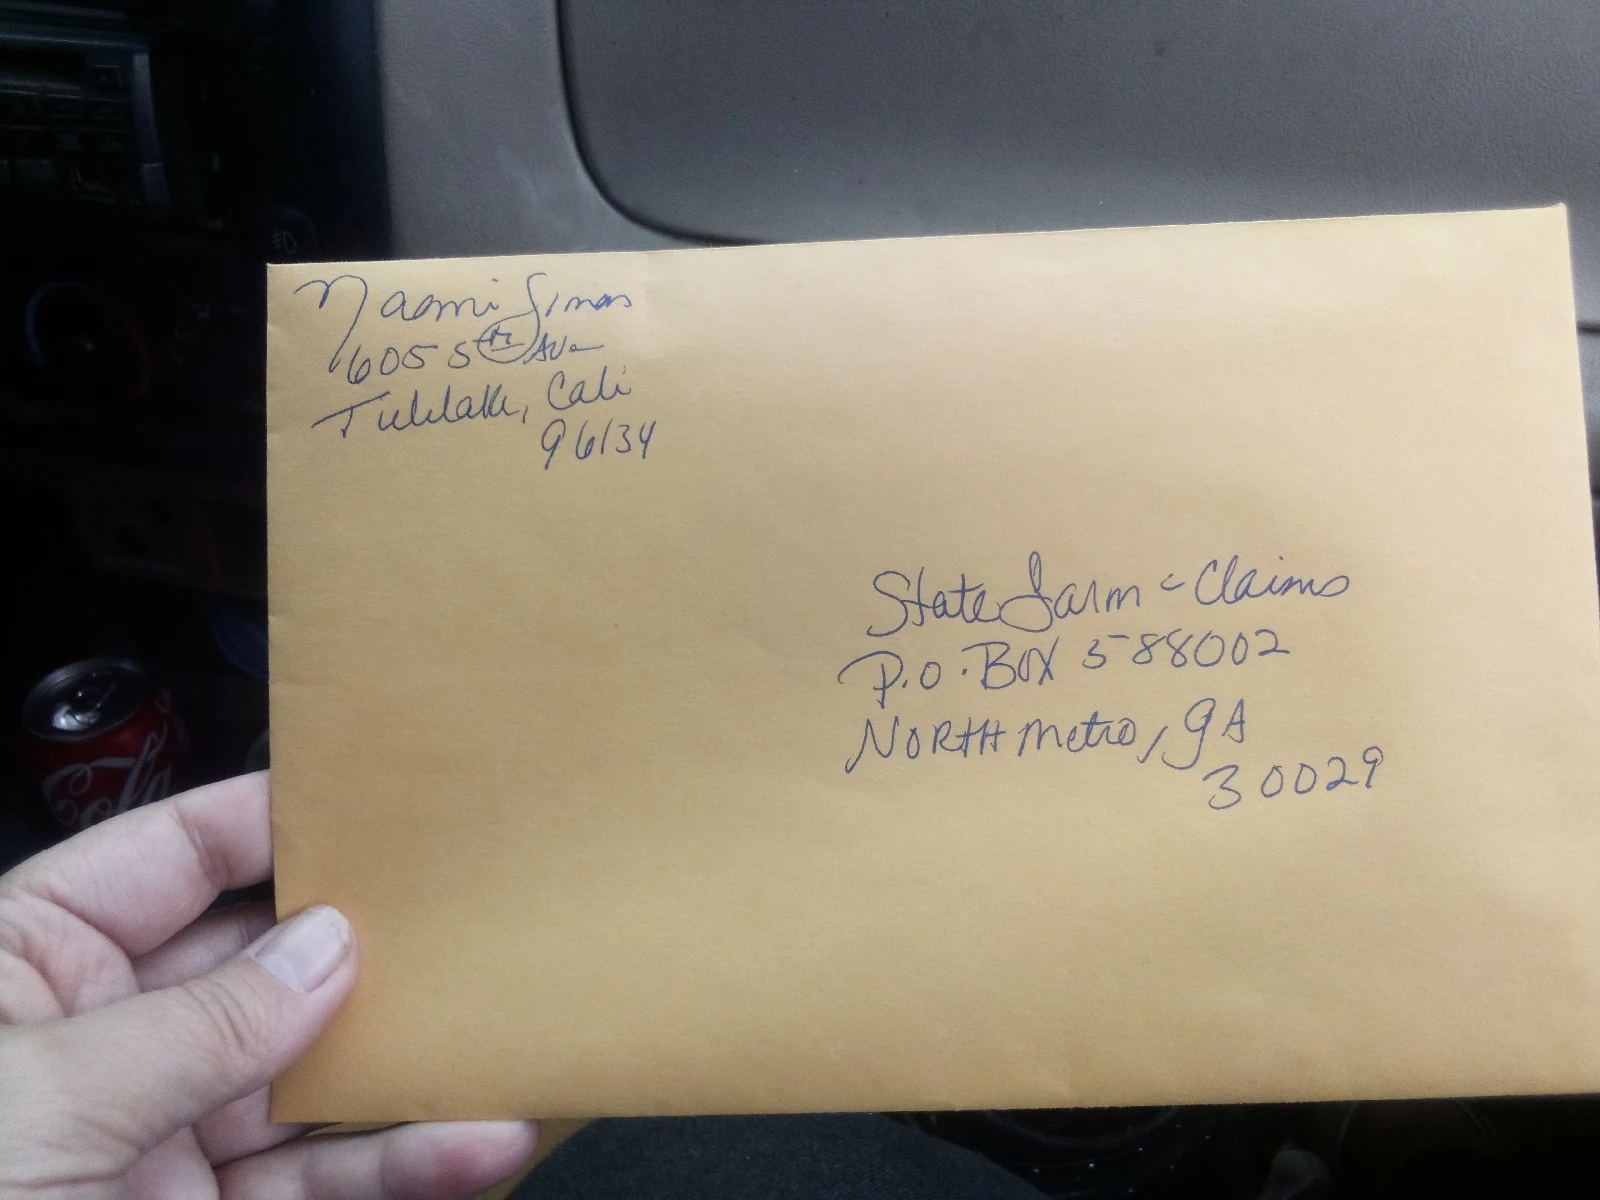 Naomi Simas
605 5th Ave
Tulelake, Cali
96134
State Farm - Claims
P.O. Box 588002
North Metro, GA
30029
Cola